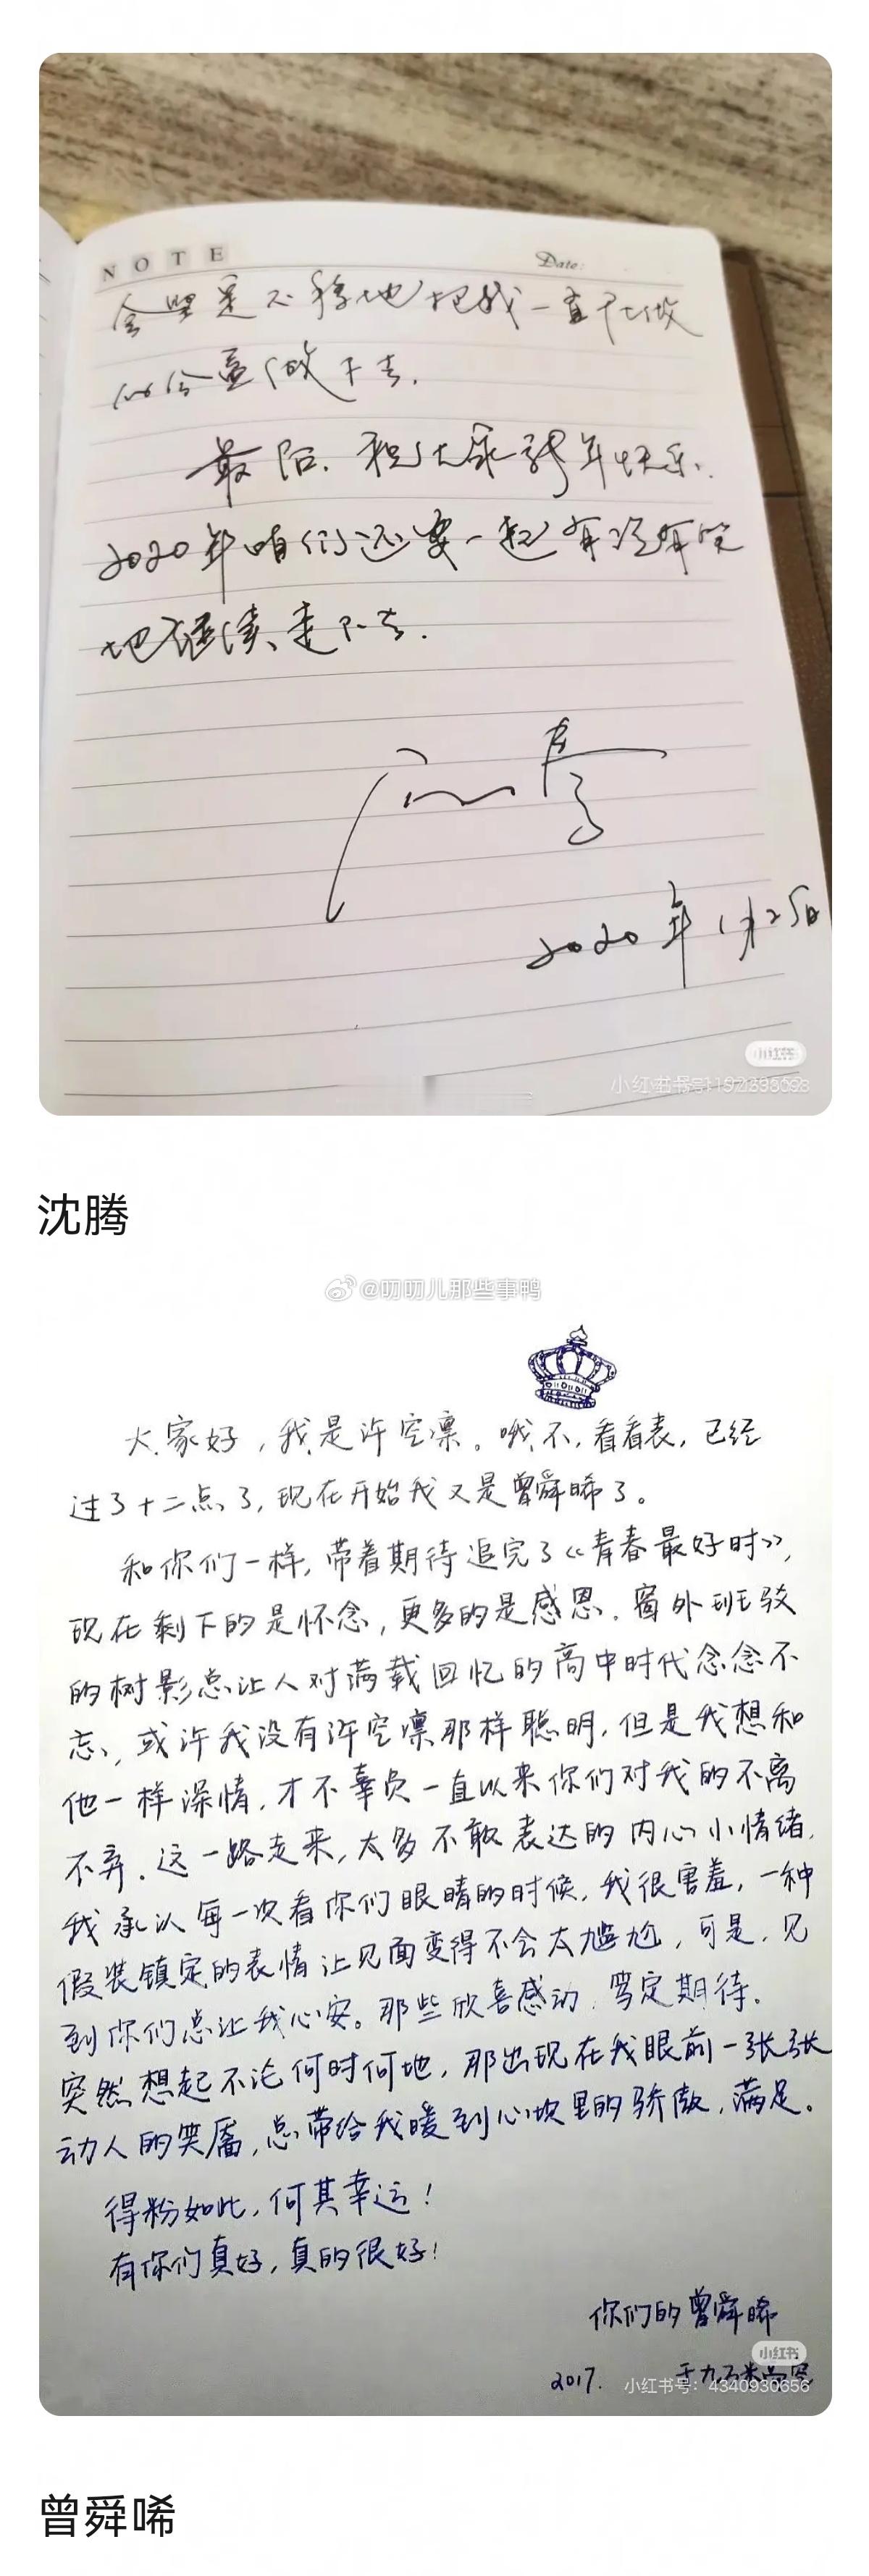 NOTE
Date:
会坚定不移地把我一直在做
的公益做下去.
最后.祝大家新年快乐.
2020年咱们还要一起有泪有笑
地继续走下去.
沈腾
2020年1月25日
小红书
沈腾
@叨叨儿那些事鸭
大家好,我是许空凛。哦不,看看表,已经
过了十二点了,现在开始我又是曾舜晞了。
和你们一样,带着期待追完了《青春最好时》,
现在剩下的是怀念,更多的是感恩.窗外班驳
的树影总让人对满载回忆的高中时代念念不
忘,或许我没有许空凛那样聪明,但是我想和
他一样深情,才不辜负一直以来你们对我的不离
不弃.这一路走来,太多不敢表达的内心小情绪.
我承认每一次看你们眼睛的时候,我很害羞,一种
假装镇定的表情让见面变得不会太尴尬,可是,见
到你们总让我心安。那些欣喜感动.笃定期待.
突然想起不论何时何地,那出现在我眼前一张张
动人的笑靥,总带给我暖到心坎里的骄傲,满足。
得粉如此,何其幸运!
有你们真好,真的很好!
你们的曾舜晞
小红书
2017.
小红书号:4340930656
曾舜唏